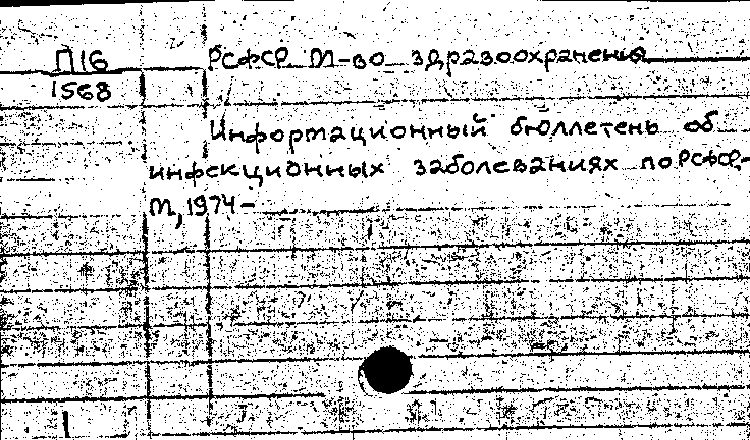 П16 РСФСР М-во здравоохранения
1568
Информационный бюллетень об
инфекционных заболеваниях по РСФСР,-
М, 1974-